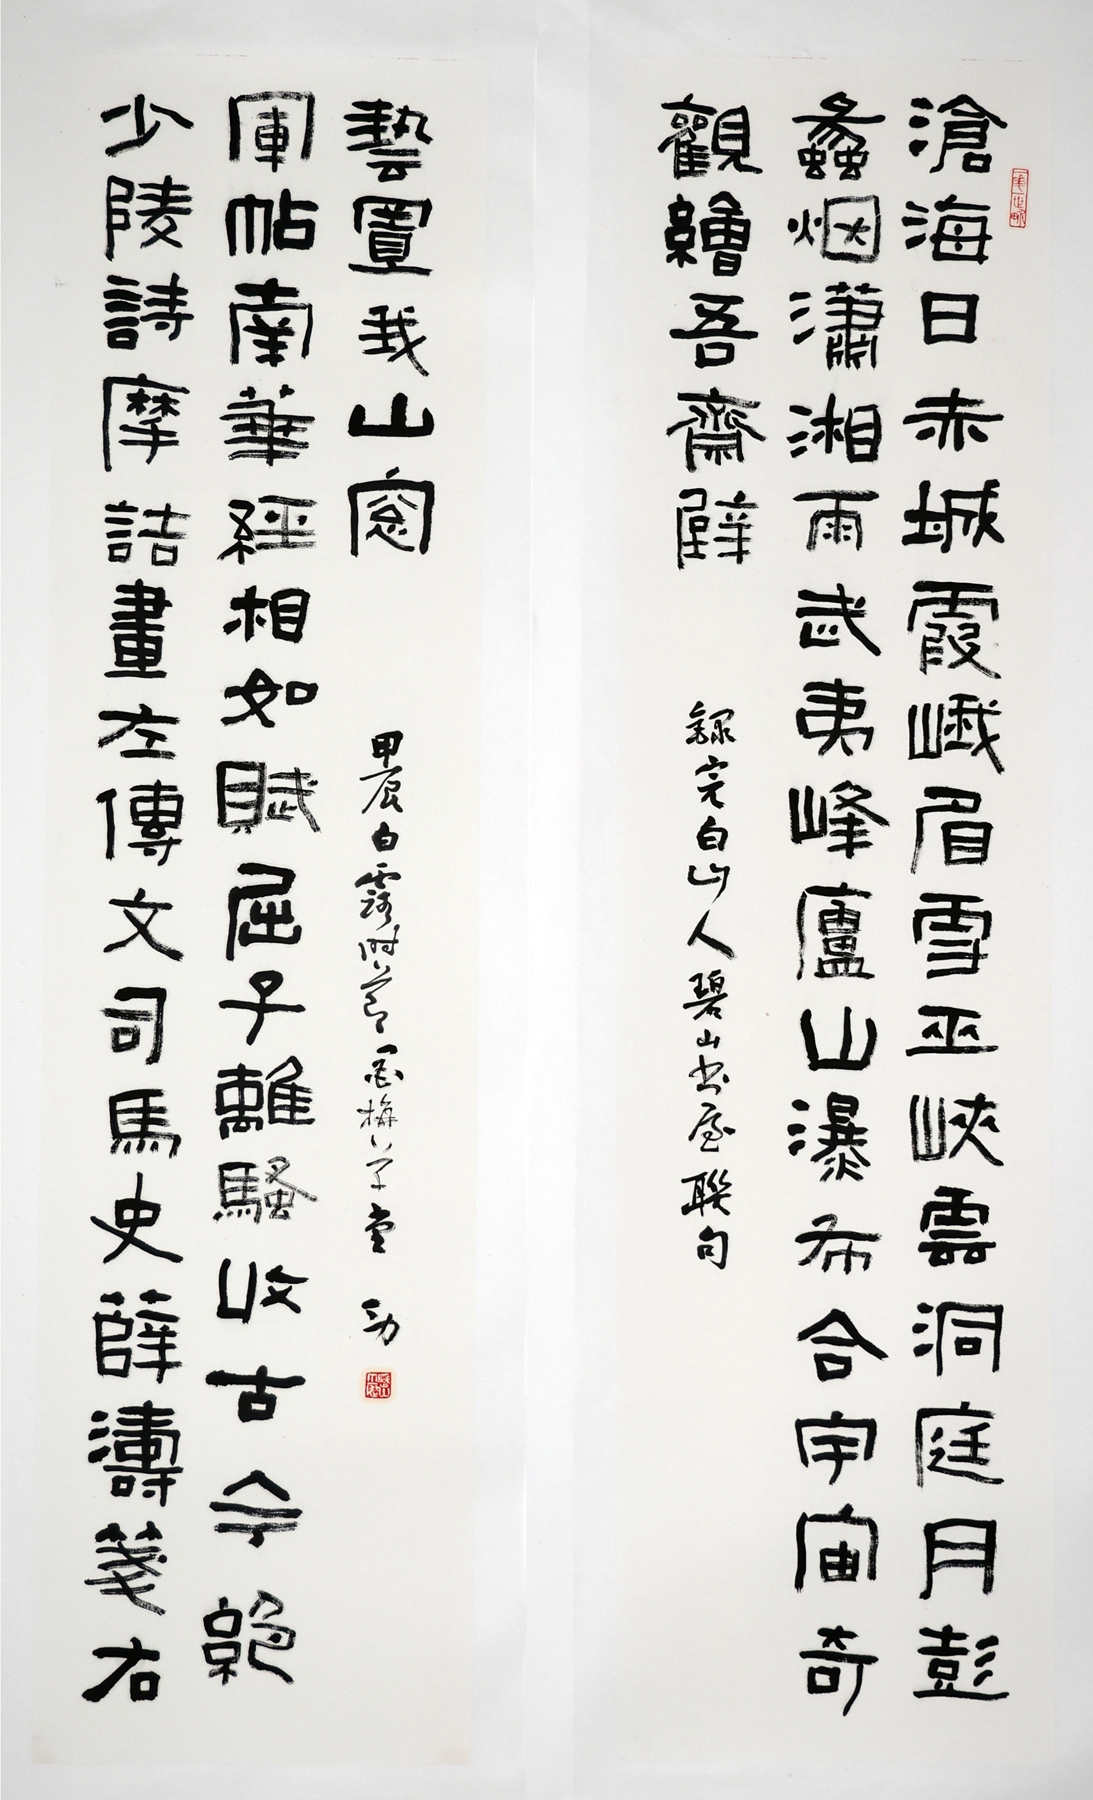 滄海日赤城霞峨眉雪巫峽雲洞庭月彭
蠡烟瀟湘雨武夷峰廬山瀑布合宇宙奇
觀繪吾齋壁
錄完白山人碧山書屋聯句
少陵詩摩詰畫左傳文司馬史薛濤箋右
軍帖南華經相如賦屈子離騷收古今絕
藝置我山窗
甲辰白露時節梅草堂 勁